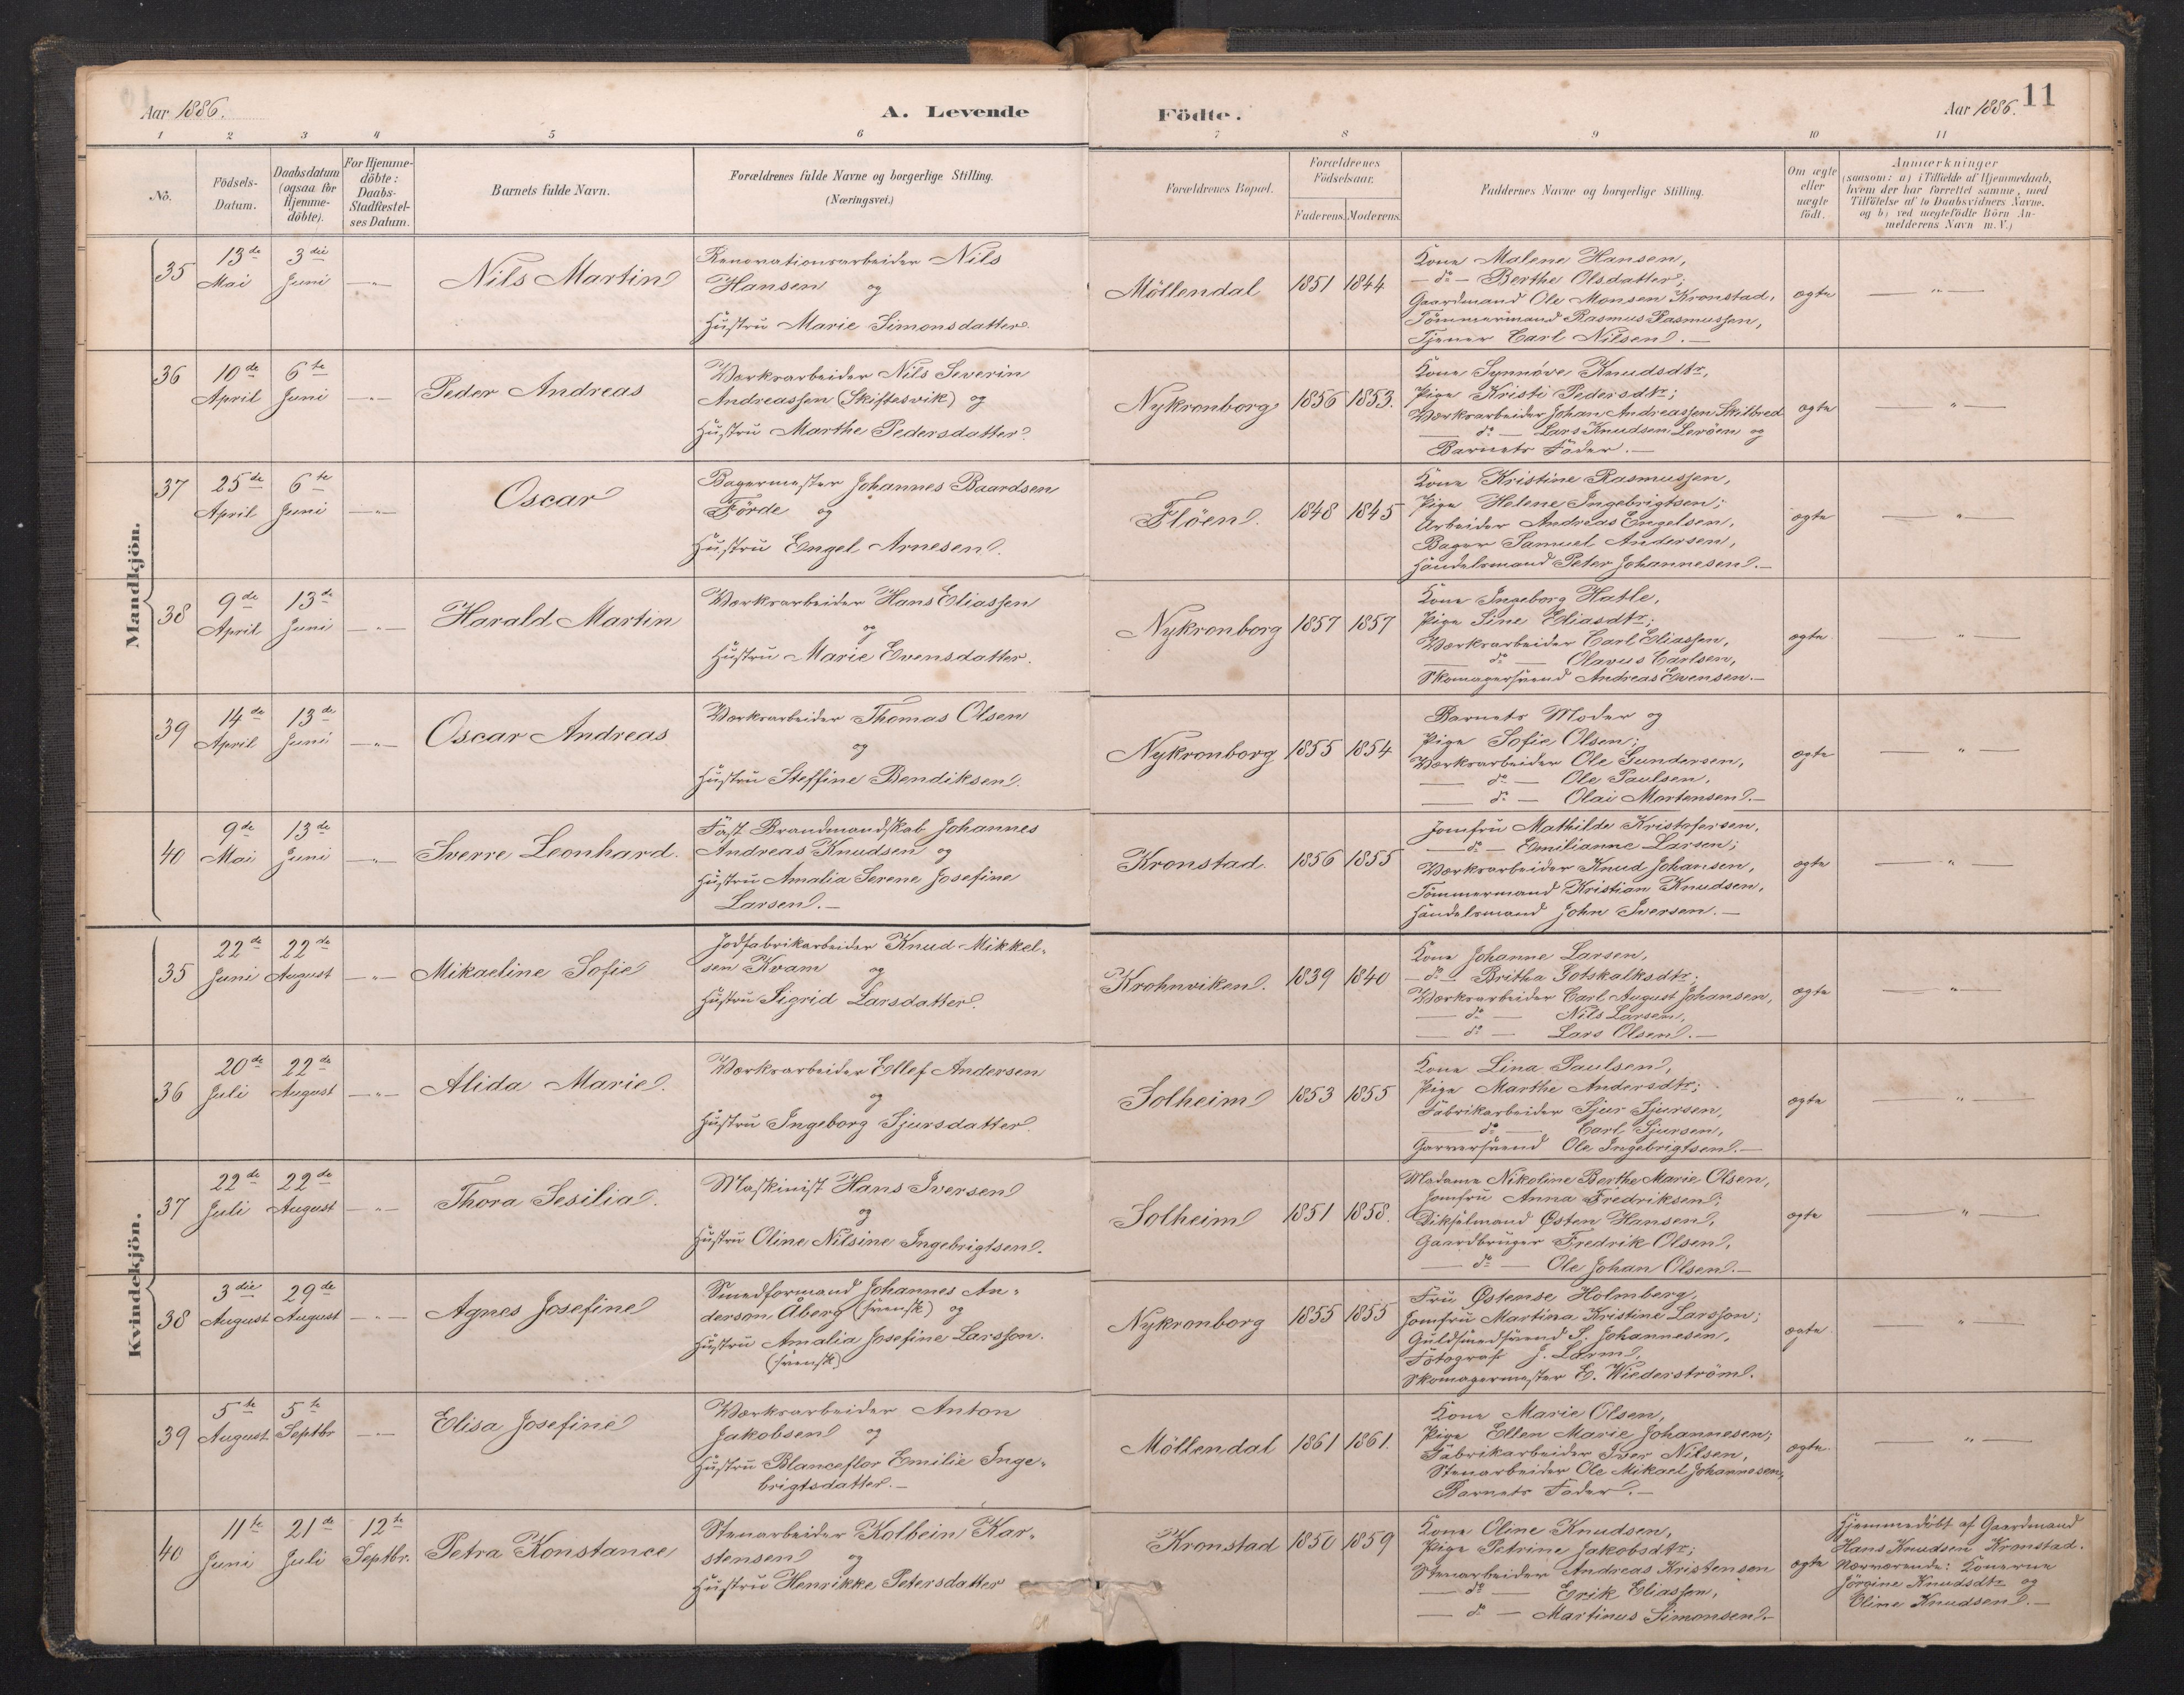 Aar 1886.
A. Levende
Födte.
Aar 1886.
11
1 2 3 4 5 6 7 8 9 10 11
No.
Födsels-
Datum.
Daabsdatum
(ogsaa for
Hjemme-
döbte).
For Hjemme-
döbte:
Daabs-
Stadfæstel-
ses Datum.
Barnets fulde Navn.
Forældrenes fulde Navne og borgerlige Stilling.
(Næringsvei.)
Forældrenes Bopæl.
Forældrenes
Födselsaar.
Faderens. Moderens.
Faddernes Navne og borgerlige Stilling.
Om ægte
eller
uægte
födt.
Anmærkninger
(saasom: a) i Tilfælde af Hjemmedaab,
hvem der har forrettet samme, med
Tilföielse af to Daabsvidners Navne.
og b) ved uægtefödte Börn An-
melderens Navn m. V.)
Mandkjön.
35
13de
Mai
3die
Juni
— " —
Nils Martin
Renovationsarbeider Nils
Hansen og
Hustru Marie Simonsdatter.
Möllendal
1851 1844
Kone Malene Hansen,
— do — Berthe Olsdatter;
Gaardmand Ole Monsen Kronstad,
Tömmermand Rasmus Rasmussen,
Tjener Carl Nilsen. —
ægte
— " —
36
10de
April
6te
Juni
— " —
Peder Andreas
Værksarbeider Nils Severin
Andreassen (Skiftesvik) og
Hustru Marthe Pedersdatter.
Nykronborg
1856 1853.
Kone Synnöve Knudsdtr,
Pige Kristi Pedersdtr;
Værksarbeider Johan Andreassen Skilbred
— do — Lars Knudsen Leröen og
Barnets Fader. —
ægte
" —
37
25de
April
6te
Juni
— " —
Oscar
Bagermester Johannes Baardsen
Förde og
Hustru Engel Arnesen.
Flöen.
1848 1845
Kone Kristine Rasmussen,
Pige Helene Ingebrigtsen;
Arbeider Andreas Engelsen,
Bager Samuel Andersen,
Handelsmand Peter Johannesen. —
ægte
— " —
38
9de
April
13de
Juni
— " —
Harald Martin
Værksarbeider Hans Eliassen
og
Hustru Marie Evensdatter.
Nykronborg
1857 1857
Kone Ingeborg Hatle,
Pige Sine Eliasdtr;
Værksarbeider Carl Eliassen,
— do — Olavus Carlsen,
Skomagersvend Andreas Evensen. —
ægte
— " —
39
14de
April
13de
Juni
— " —
Oscar Andreas
Værksarbeider Thomas Olsen
og
Hustru Steffine Bendiksen.
Nykronborg
1855 1854
Barnets Moder og
Pige Sofie Olsen;
Værksarbeider Ole Gundersen,
— do — Ole Paulsen,
— do — Olai Mortensen. —
ægte
— " —
40
9de
Mai
13de
Juni
— " —
Sverre Leonhard.
Fast Brandmandskab Johannes
Andreas Knudsen og
Hustru Amalia Serene Josefine
Larsen. —
Kronstad
1856 1855
Jomfru Mathilde Kristofersen,
— do — Emilianne Larsen;
Værksarbeider Knud Johansen,
Tömmermand Kristian Knudsen,
Handelsmand John Iversen. —
ægte
— " —
Kvindekjön.
35
22de
Juni
22de
August
— " —
Mikaeline Sofie
Jodfabrikarbeider Knud Mikkel-
sen Kvam og
Hustru Sigrid Larsdatter.
Krohnviken.
1839 1840
Kone Johanne Larsen,
— do — Britha Gotskalksdtr;
Værksarbeider Carl August Johansen,
— do — Nils Larsen,
— do — Lars Olsen. —
ægte
— " —
36
20de
Juli
22de
August
— " —
Alida Marie.
Værksarbeider Ellef Andersen
og
Hustru Ingeborg Sjursdatter.
Solheim
1853 1855
Kone Lina Paulsen,
Pige Marthe Andersdtr;
Fabrikarbeider Sjur Sjursen,
— do — Carl Sjursen,
Garversvend Ole Ingebrigtsen. —
ægte
— " —
37
22de
Juli
22de
August
— " —
Thora Sesilia.
Maskinist Hans Iversen
og
Hustru Oline Nilsine Ingebrigtsen.
Solheim
1851 1858.
Madame Nikoline Berthe Marie Olsen,
Jomfru Anna Fredriksen;
Dikselmand Østen Hansen,
Gaardbruger Fredrik Olsen,
— do — Ole Johan Olsen. —
ægte
— " —
38
3die
August
29de
August
— " —
Agnes Josefine
Smedformand Johannes An-
derson Åberg (svensk) og
Hustru Amalia Josefine Larsson.
(svensk)
Nykronborg
1855 1855
Fru Østense Holmberg,
Jomfru Martina Kristine Larsson;
Guldsmedsvend S. Johannesen,
Fotograf J. Lorm,
Skomagermester E. Wiederström.
ægte
— " —
39
5te
August
5te
Septbr
— " —
Elisa Josefine
Værksarbeider Anton
Jakobsen og
Hustru Blanceflor Emilie Inge-
brigtsdatter. —
Möllendal
1861 1861.
Kone Marie Olsen,
Pige Ellen Marie Johannesen;
Fabrikarbeider Iver Nilsen,
Stenarbeider Ole Mikael Johannesen,
Barnets Fader. —
ægte
— " —
40
11te
Juni
21de
Juli
12te
Septbr.
Petra Konstance
Stenarbeider Kolbein Kar-
stensen og
Hustru Henrikke Petersdatter
Kronstad
1850 1859
Kone Oline Knudsen,
Pige Petrine Jakobsdtr;
Stenarbeider Andreas Kristensen
— do — Erik Eliassen,
— do — Martinus Simonsen. —
ægte
Hjemmedöbt af Gaardmand
Hans Knudsen Kronstad.
Nærværende: Konerne
Jörgine Knudsdtr og
Oline Knudsen. —